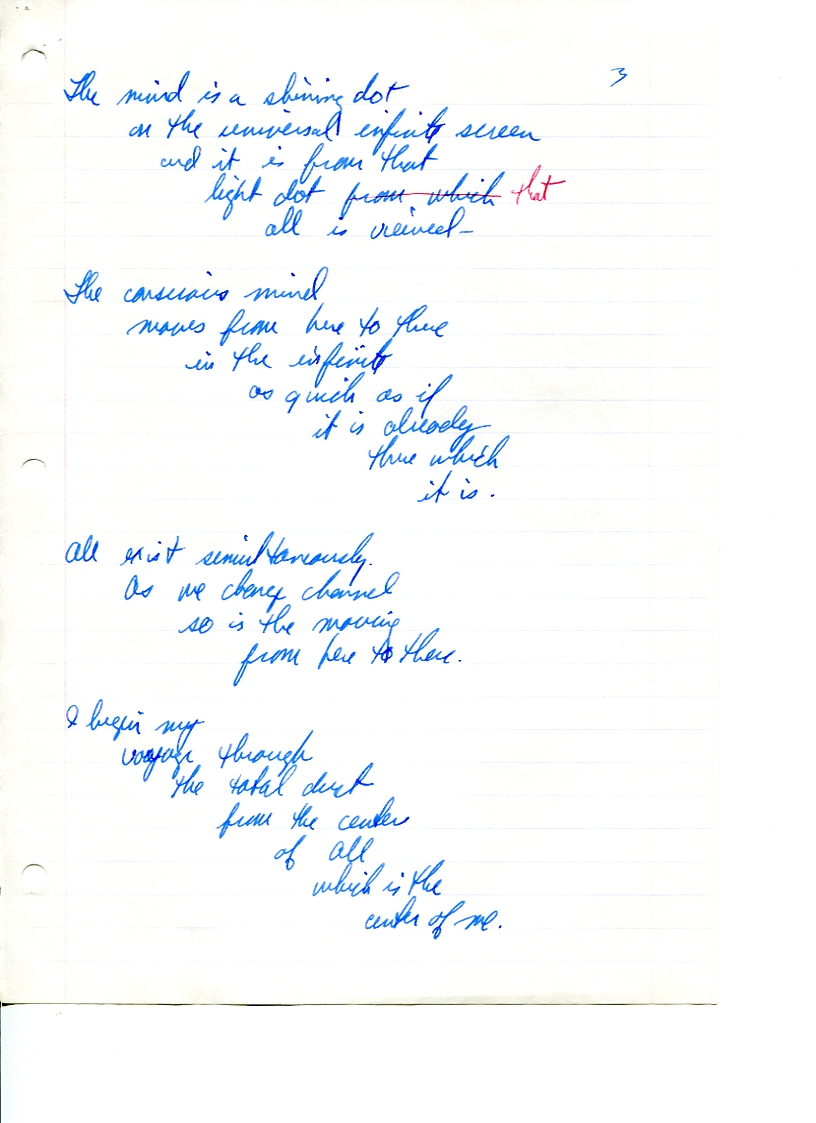 3
The mind is a shining dot
on the universal infinite screen
and it is from that
light dot from which that
all is viewed—
The conscious mind
moves from here to there
in the infinite
as quick as if
it is already
there which
it is.
All exist simultaneously.
As we change channel
so is the moving
from here to there.
I begin my
voyage through
the total dust
from the center
of all
which is the
center of me.